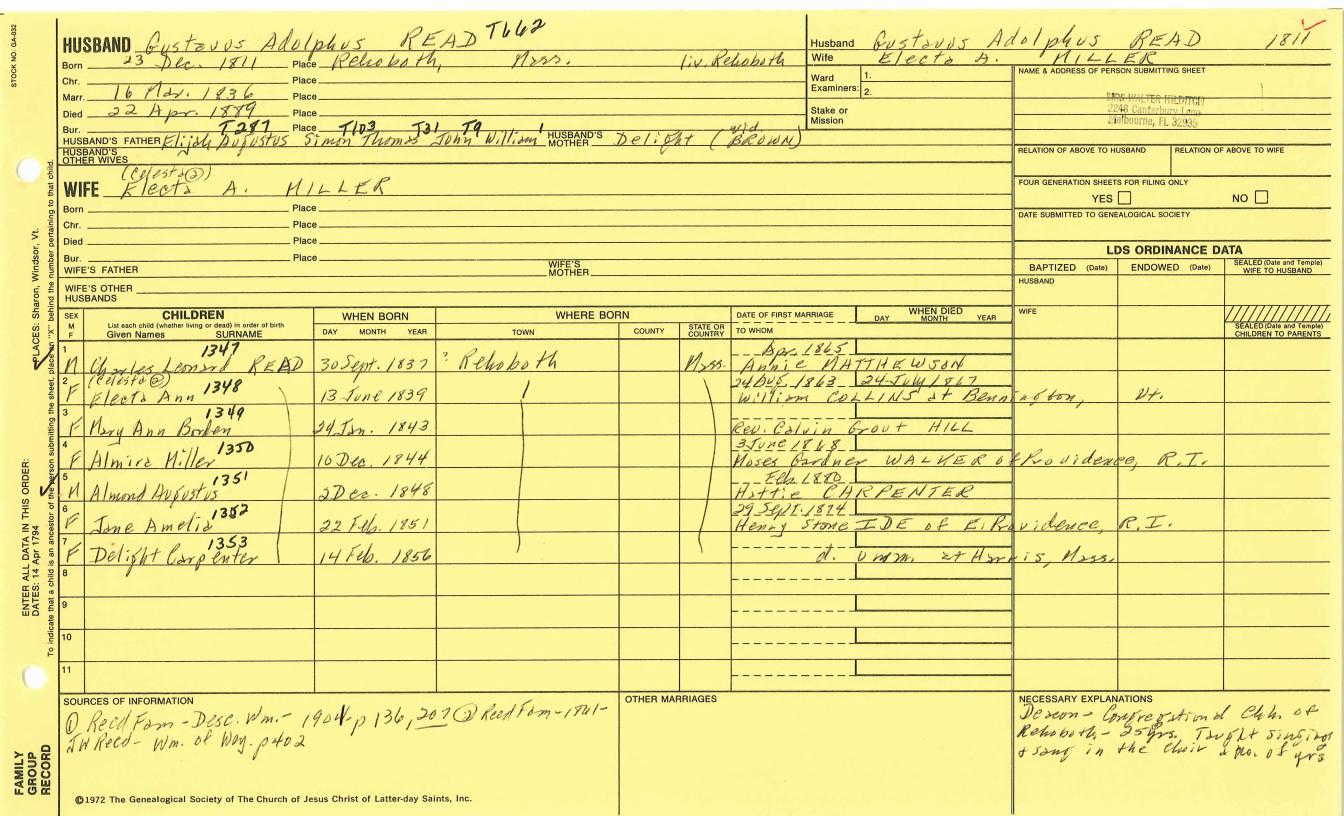 STOCK NO. GA-032
HUSBAND Gustavus Adolphus READ T662
Born 23 Dec. 1811 Place Rehoboth, Mass. liv. Rehoboth
Chr. Place
Marr. 16 Mar. 1836 Place
Died 22 Apr. 1889 Place
Bur. T287 Place T103 T31 T9 1
HUSBAND'S FATHER Elijah Augustus Simon Thomas John William HUSBAND'S MOTHER Delight (wid BROWN)
HUSBAND'S OTHER WIVES
(Celesta②)
WIFE Electa A. MILLER
Born Place
Chr. Place
Died Place
Bur. Place
WIFE'S FATHER WIFE'S MOTHER
WIFE'S OTHER HUSBANDS
Husband Gustavus Adolphus READ 1811
Wife Electa A. MILLER
Ward Examiners: 1.
2.
Stake or Mission
NAME & ADDRESS OF PERSON SUBMITTING SHEET
MRS WALTER HILDITCH
2248 Canterbury Lane
Melbourne, FL 32935
RELATION OF ABOVE TO HUSBAND RELATION OF ABOVE TO WIFE
FOUR GENERATION SHEETS FOR FILING ONLY
YES NO
DATE SUBMITTED TO GENEALOGICAL SOCIETY
LDS ORDINANCE DATA
BAPTIZED (Date) ENDOWED (Date) SEALED (Date and Temple) WIFE TO HUSBAND
HUSBAND
WIFE
SEALED (Date and Temple) CHILDREN TO PARENTS
SEX M F
CHILDREN
List each child (whether living or dead) in order of birth
Given Names SURNAME
WHEN BORN
DAY MONTH YEAR
WHERE BORN
TOWN COUNTY STATE OR COUNTRY
DATE OF FIRST MARRIAGE
TO WHOM
WHEN DIED
DAY MONTH YEAR
1 1347 Apr. 1865
M Charles Leonard READ 30 Sept. 1837 ? Rehoboth Mass. Annie MATTHEWSON
2 (Celesta②) 1348 24 Aug. 1863 24 July 1867
F Electa Ann 13 June 1839 William COLLINS at Bennington, Vt.
3 1349
F Mary Ann Borden 24 Jan. 1843 Rev. Calvin Grout HILL
4 1350 3 June 1868
F Almira Miller 10 Dec. 1844 Moses Gardner WALKER of Providence, R.I.
5 1351 Feb. 1880
M Almond Augustus 2 Dec. 1848 Hattie CARPENTER
6 1352 29 Sept. 1874
F Jane Amelia 22 Feb. 1851 Henry Stone IDE of E. Providence, R.I.
7 1353
F Delight Carpenter 14 Feb. 1856 d. unm. at Harris, Mass.
8
9
10
11
SOURCES OF INFORMATION
① Reed Fam - Desc. Wm. - 1904 - p 136, 207 ② Reed Fam - 1861 -
JW Reed - Wm. of Wey. p 402
OTHER MARRIAGES
NECESSARY EXPLANATIONS
Deacon - Congregational Chh. of
Rehoboth - 25 yrs. Taught singing
& sang in the choir a no. of yrs
©1972 The Genealogical Society of The Church of Jesus Christ of Latter-day Saints, Inc.
ENTER ALL DATA IN THIS ORDER:
DATES: 14 Apr 1794
PLACES: Sharon, Windsor, Vt.
To indicate that a child is an ancestor of the person submitting the sheet, place an "X" behind the number pertaining to that child.
FAMILY GROUP RECORD